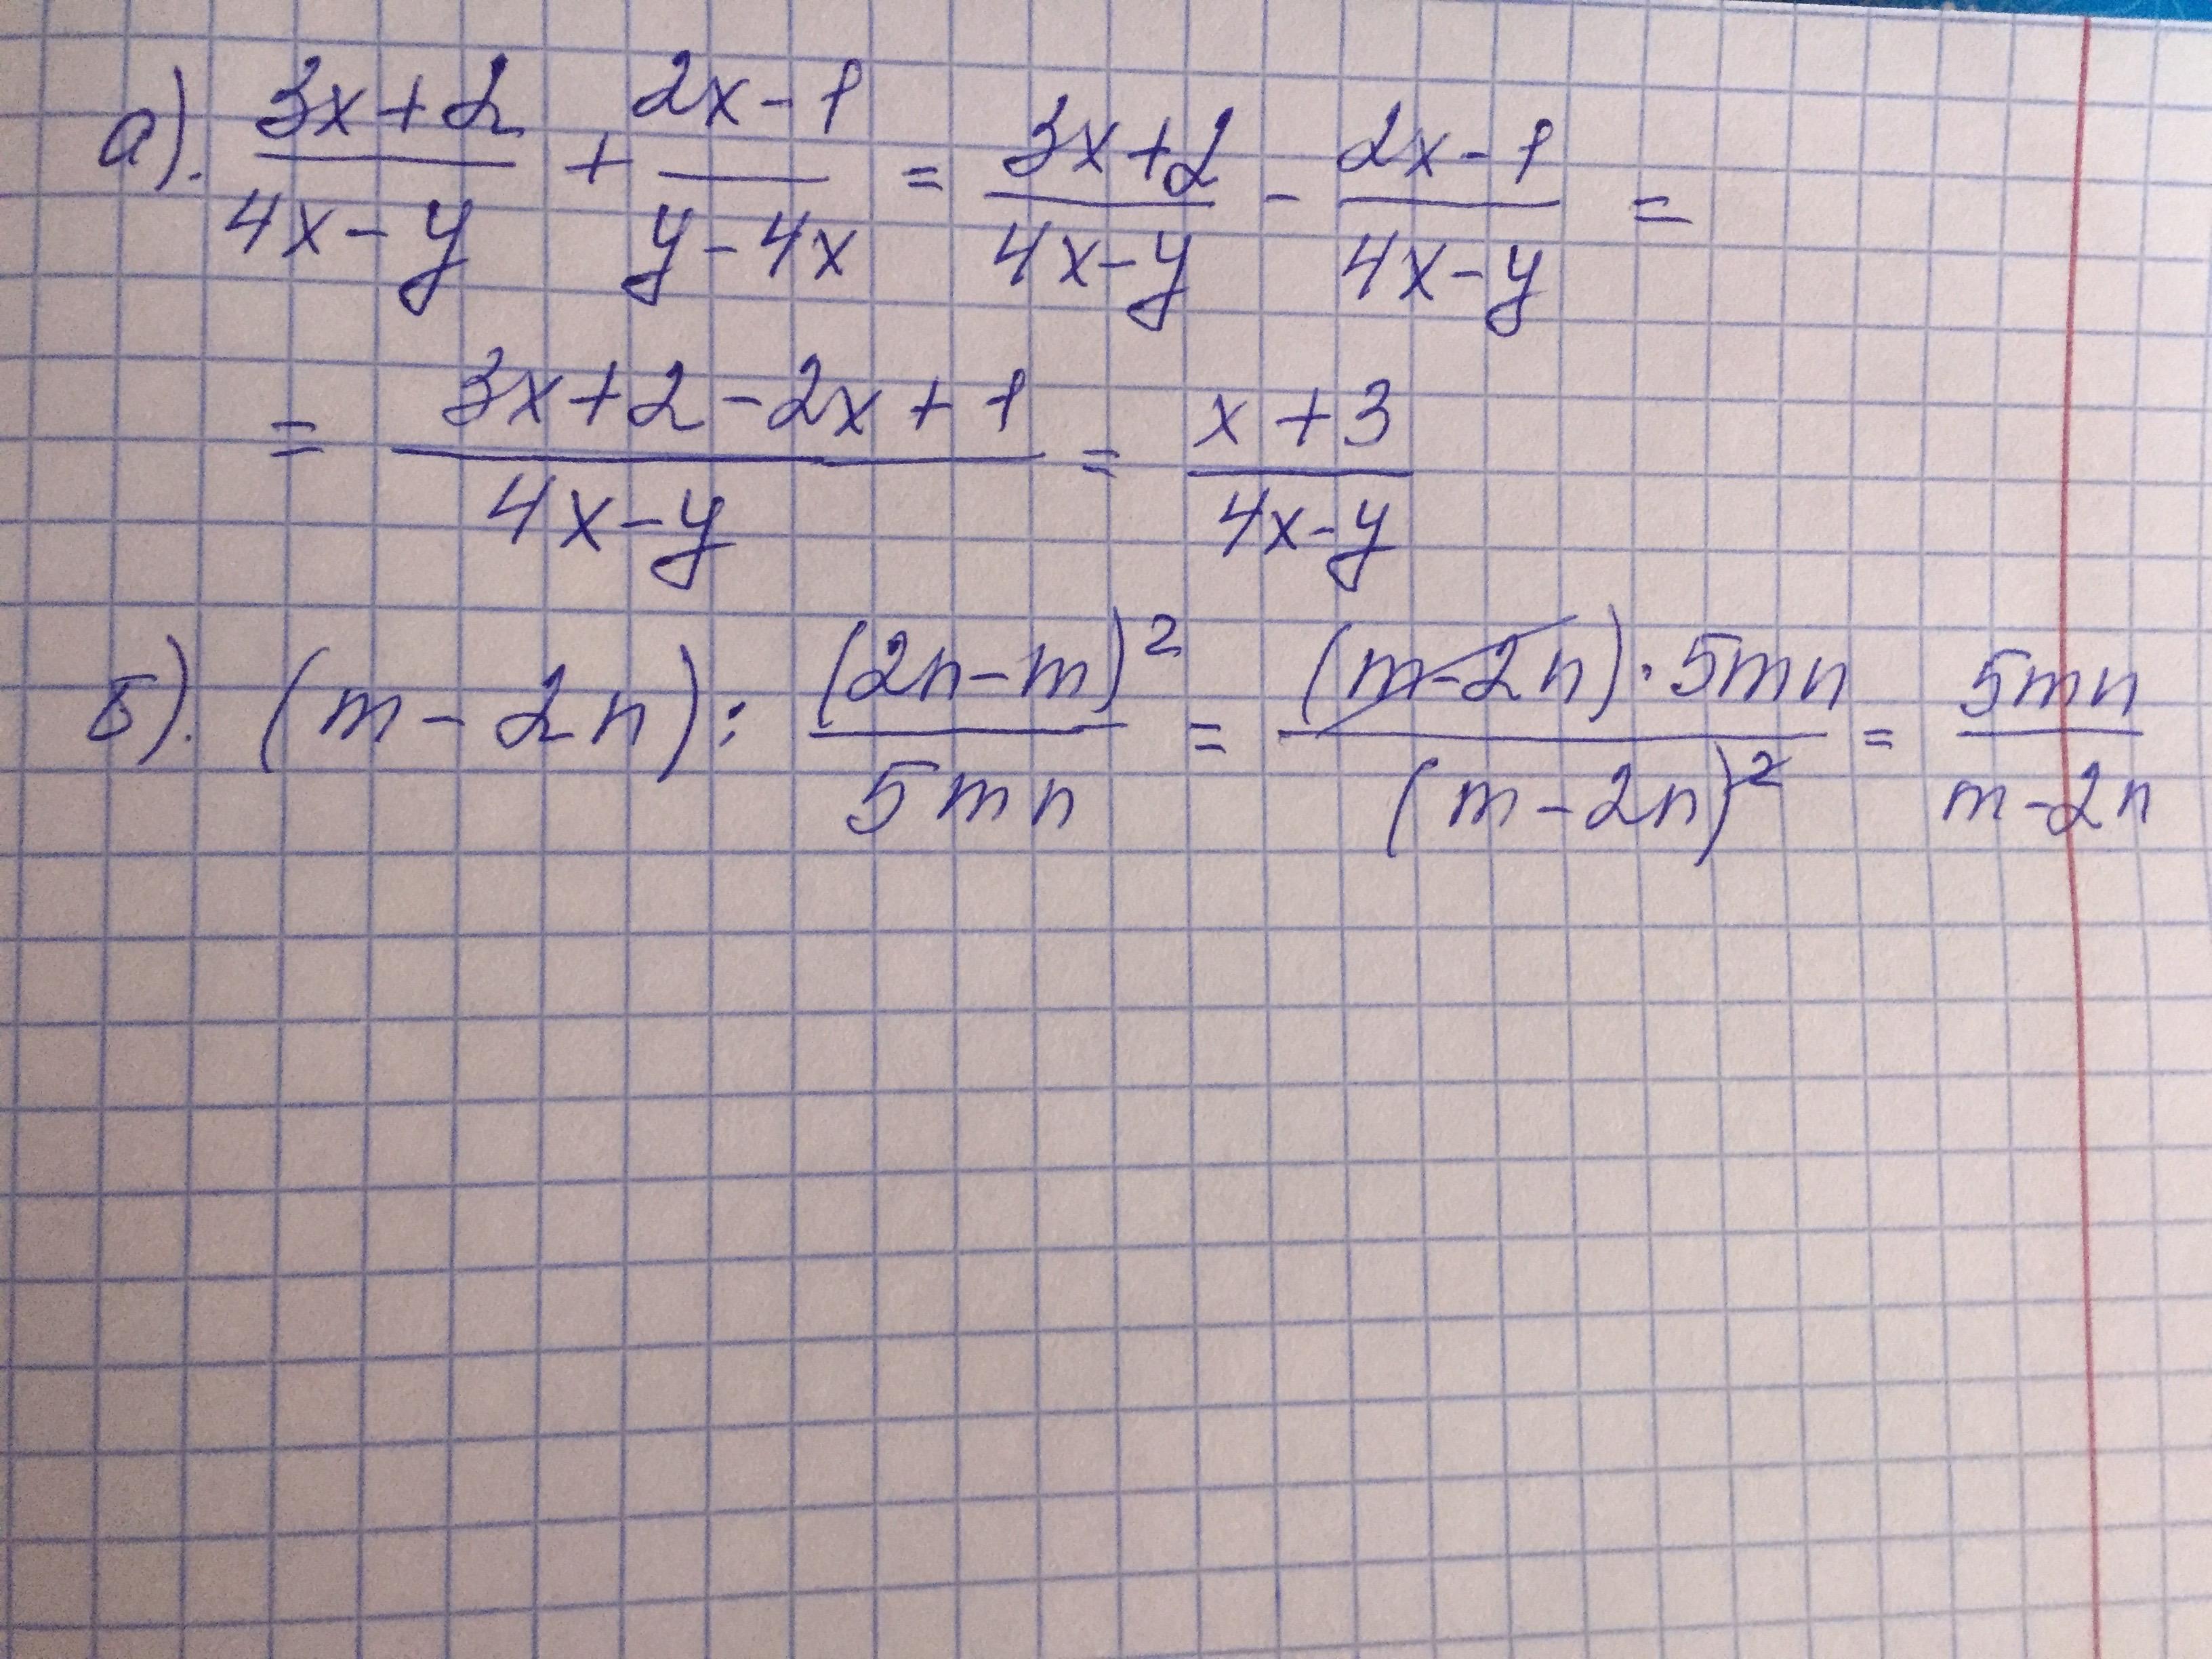 а). (3x+2)/(4x-y) + (2x-1)/(y-4x) = (3x+2)/(4x-y) - (2x-1)/(4x-y) =
= (3x+2-2x+1)/(4x-y) = (x+3)/(4x-y)
б). (m-2n) : (2n-m)²/(5mn) = ((m-2n)·5mn)/(m-2n)² = 5mn/(m-2n)